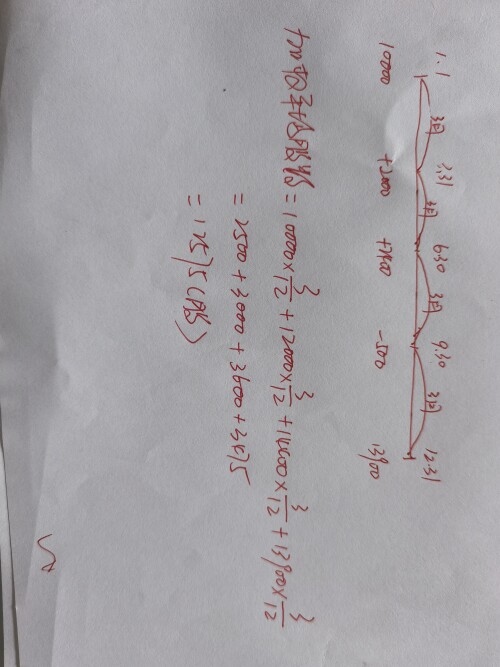 1.1 3.31 6.30 9.30 12.31
3月 3月 3月 3月
10000 +2000 +2400 -500 13900
加权平均股数 = 10000×3/12 + 12000×3/12 + 14400×3/12 + 13900×3/12
= 2500 + 3000 + 3600 + 3475
= 12575(股)